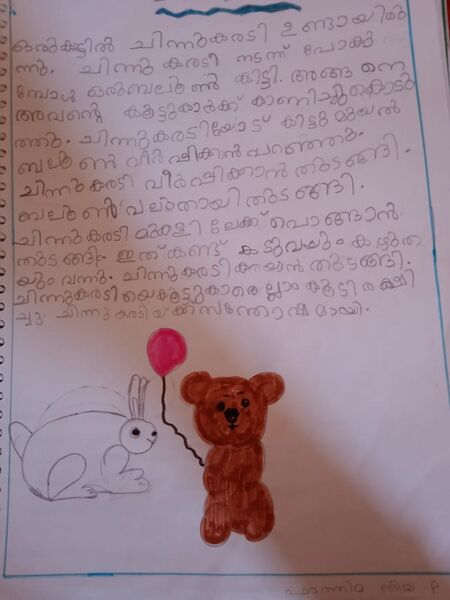 ഒരുകാട്ടിൽ ചിന്നുകരടി ഉണ്ടായിരു
ന്നു. ചിന്നു കരടി നടന്ന് പോകു
മ്പോൾ ഒരുബലൂൺ കിട്ടി. അങ്ങനെ
അവന്റെ കൂട്ടുകാർക്ക് കാണിച്ചുകൊടു
ത്തു. ചിന്നുകരടിയോട് കിട്ടു മുയൽ
ബലൂൺ വീർപ്പിക്കാൻ പറഞ്ഞു.
ചിന്നുകരടി വീർപ്പിക്കാൻ തുടങ്ങി.
ബലൂൺ വലുതായി തുടങ്ങി.
ചിന്നുകരടി മുകളിലേക്ക് പൊങ്ങാൻ
തുടങ്ങി. ഇത് കണ്ട് കടുവയും കഴുത
യും വന്നു. ചിന്നുകരടി കരയാൻ തുടങ്ങി.
ചിന്നുകരടിയെകൂട്ടുകാരെല്ലാം കൂടി രക്ഷി
ച്ചു. ചിന്നു കരടിയ്ക്ക് സന്തോഷമായി.
ഫാത്തിമ നിയ P